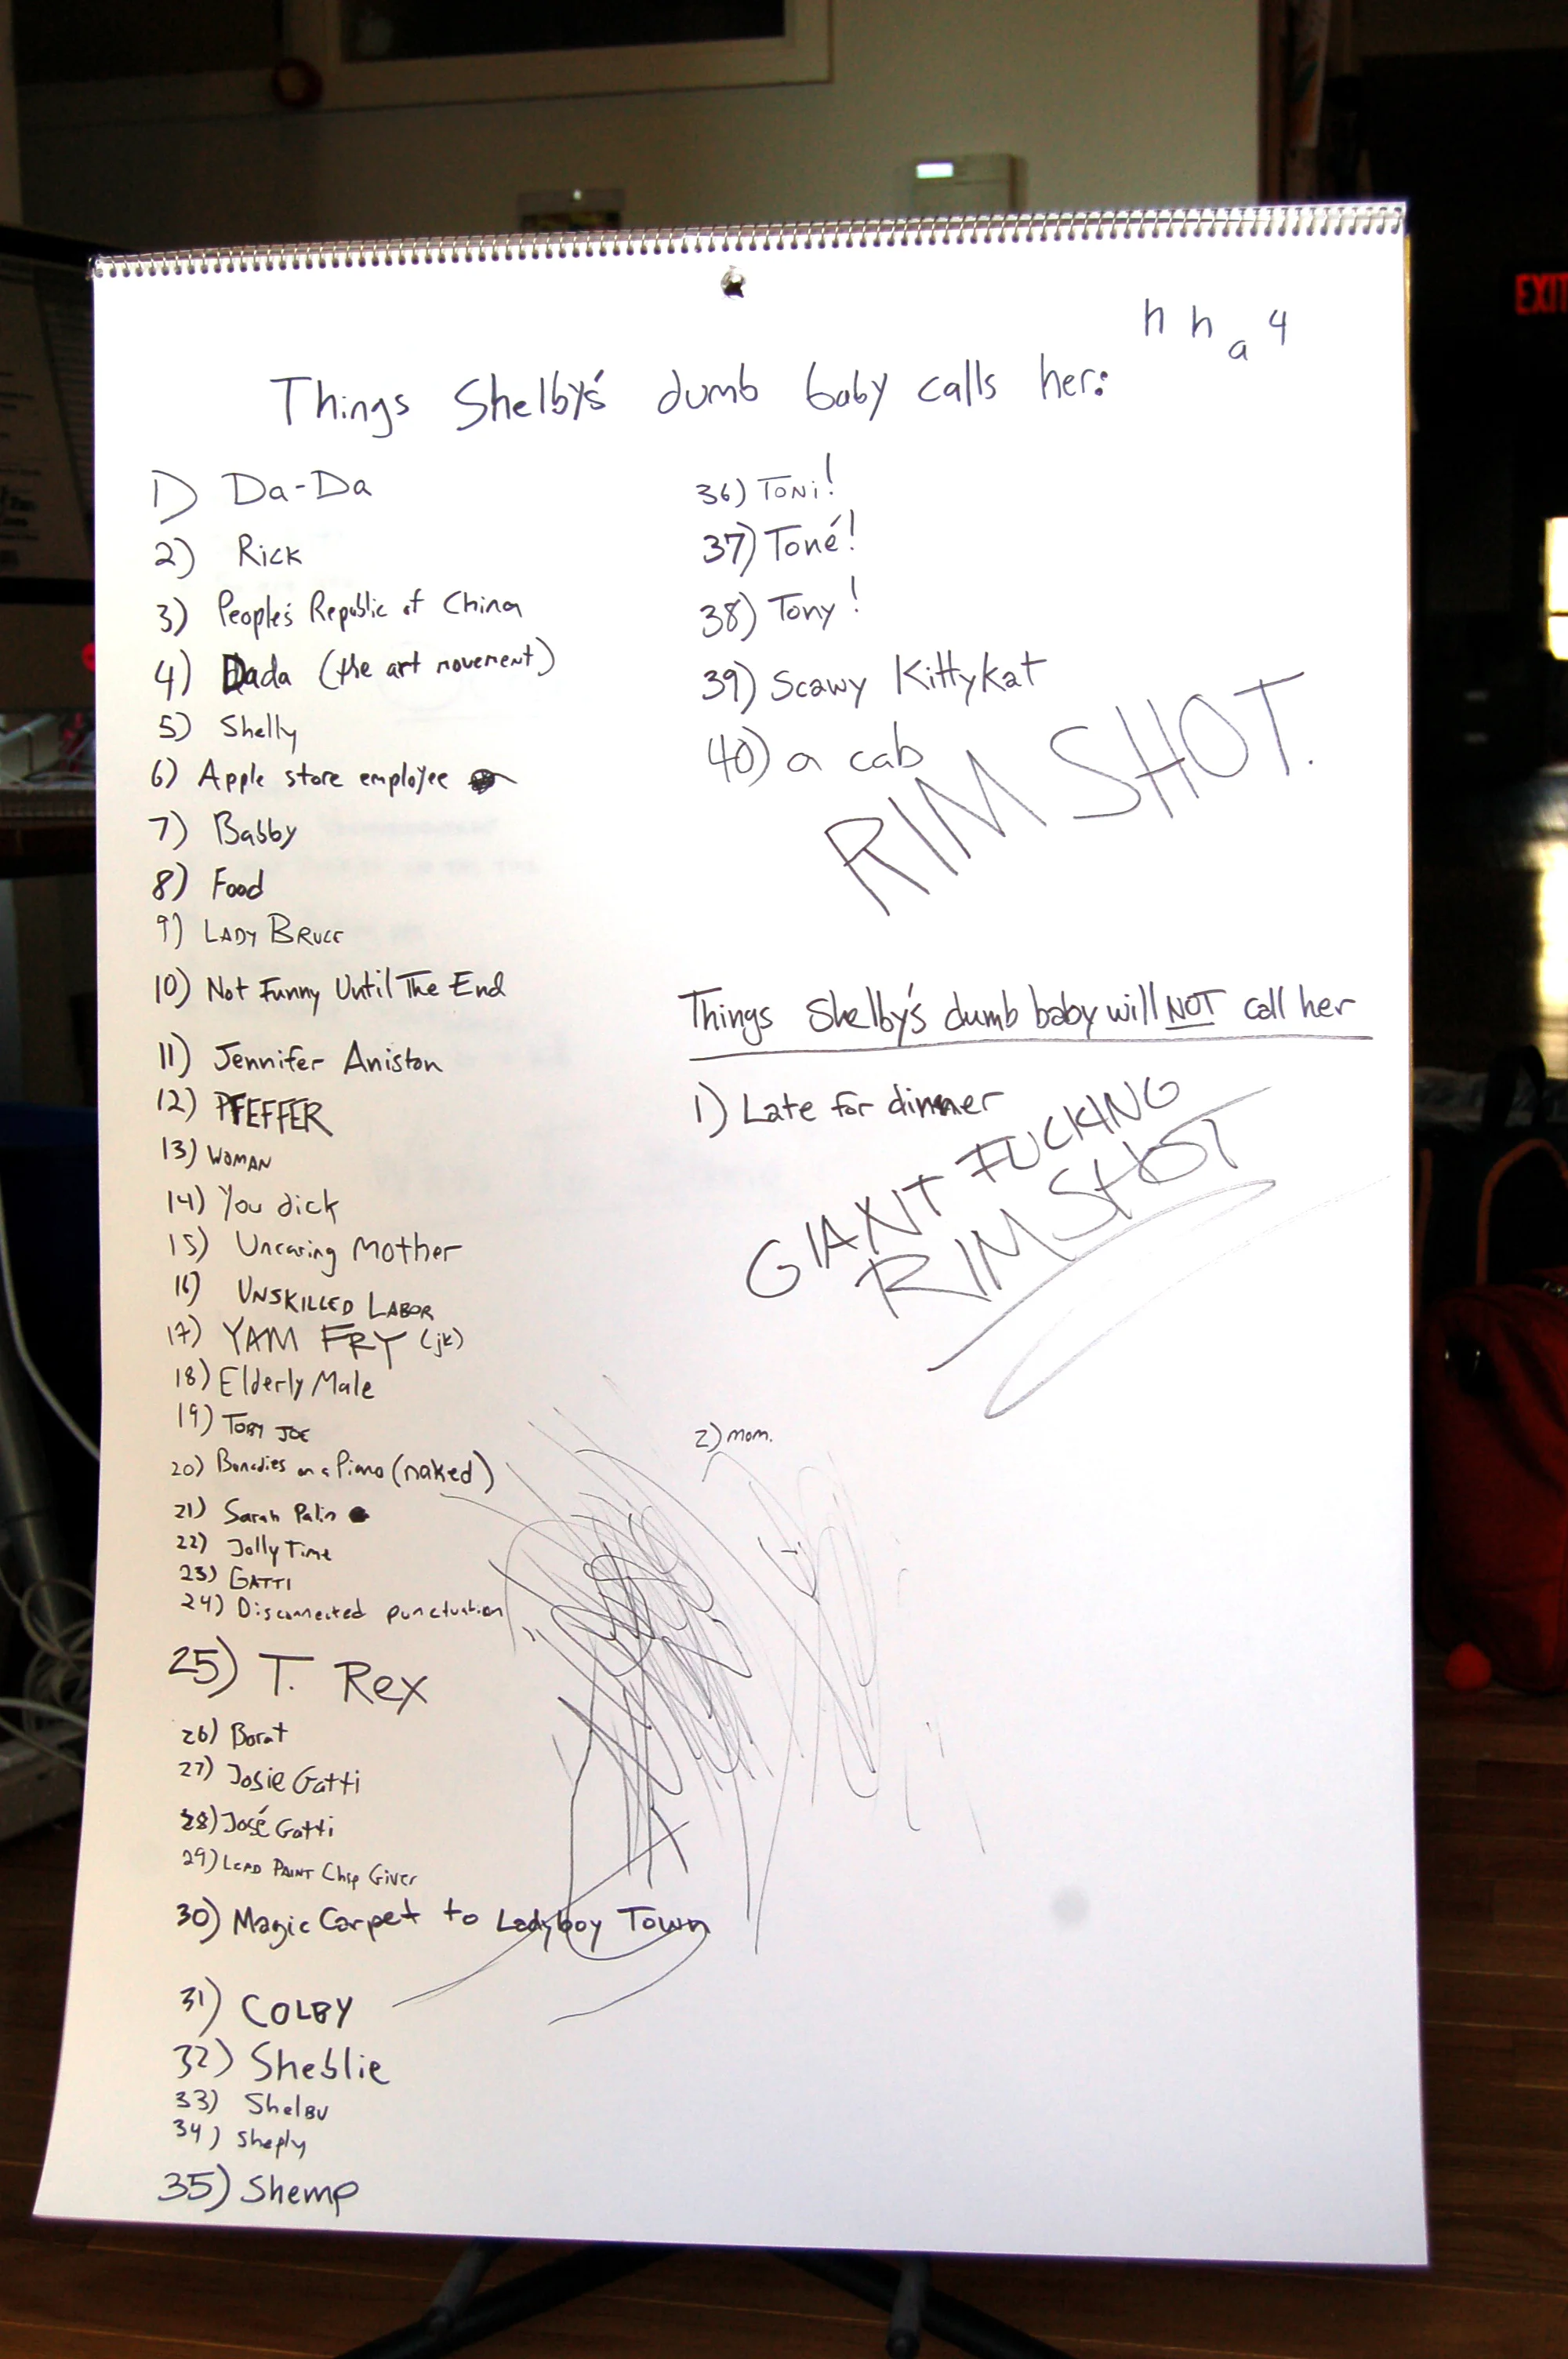 h h a 4
Things Shelby's dumb baby calls her:
1) Da-Da
2) Rick
3) People's Republic of China
4) Dada (the art movement)
5) Shelly
6) Apple store employee
7) Babby
8) Food
9) LADY BRUCE
10) Not Funny Until The End
11) Jennifer Aniston
12) PFEFFER
13) WOMAN
14) You dick
15) Uncaring Mother
16) UNSKILLED LABOR
17) YAM FRY (jk)
18) Elderly Male
19) TOBY JOE
20) on a Piano (naked)
21) Sarah Palin
22) Jolly Time
23) GATTI
24) Disconnected punctuation
25) T. Rex
26) Borat
27) Josie Gatti
28) José Gatti
29) LEAD PAINT Chip Giver
30) Magic Carpet to Ladyboy Town
31) COLBY
32) Sheblie
33) ShelBU
34) Sheply
35) Shemp
36) TONi!
37) Toné!
38) Tony!
39) Scawy Kittykat
40) a cab
RIM SHOT.
Things Shelby's dumb baby will NOT call her
1) Late for dinner
GIANT FUCKING
RIM SHOT
2) mom.
EXIT